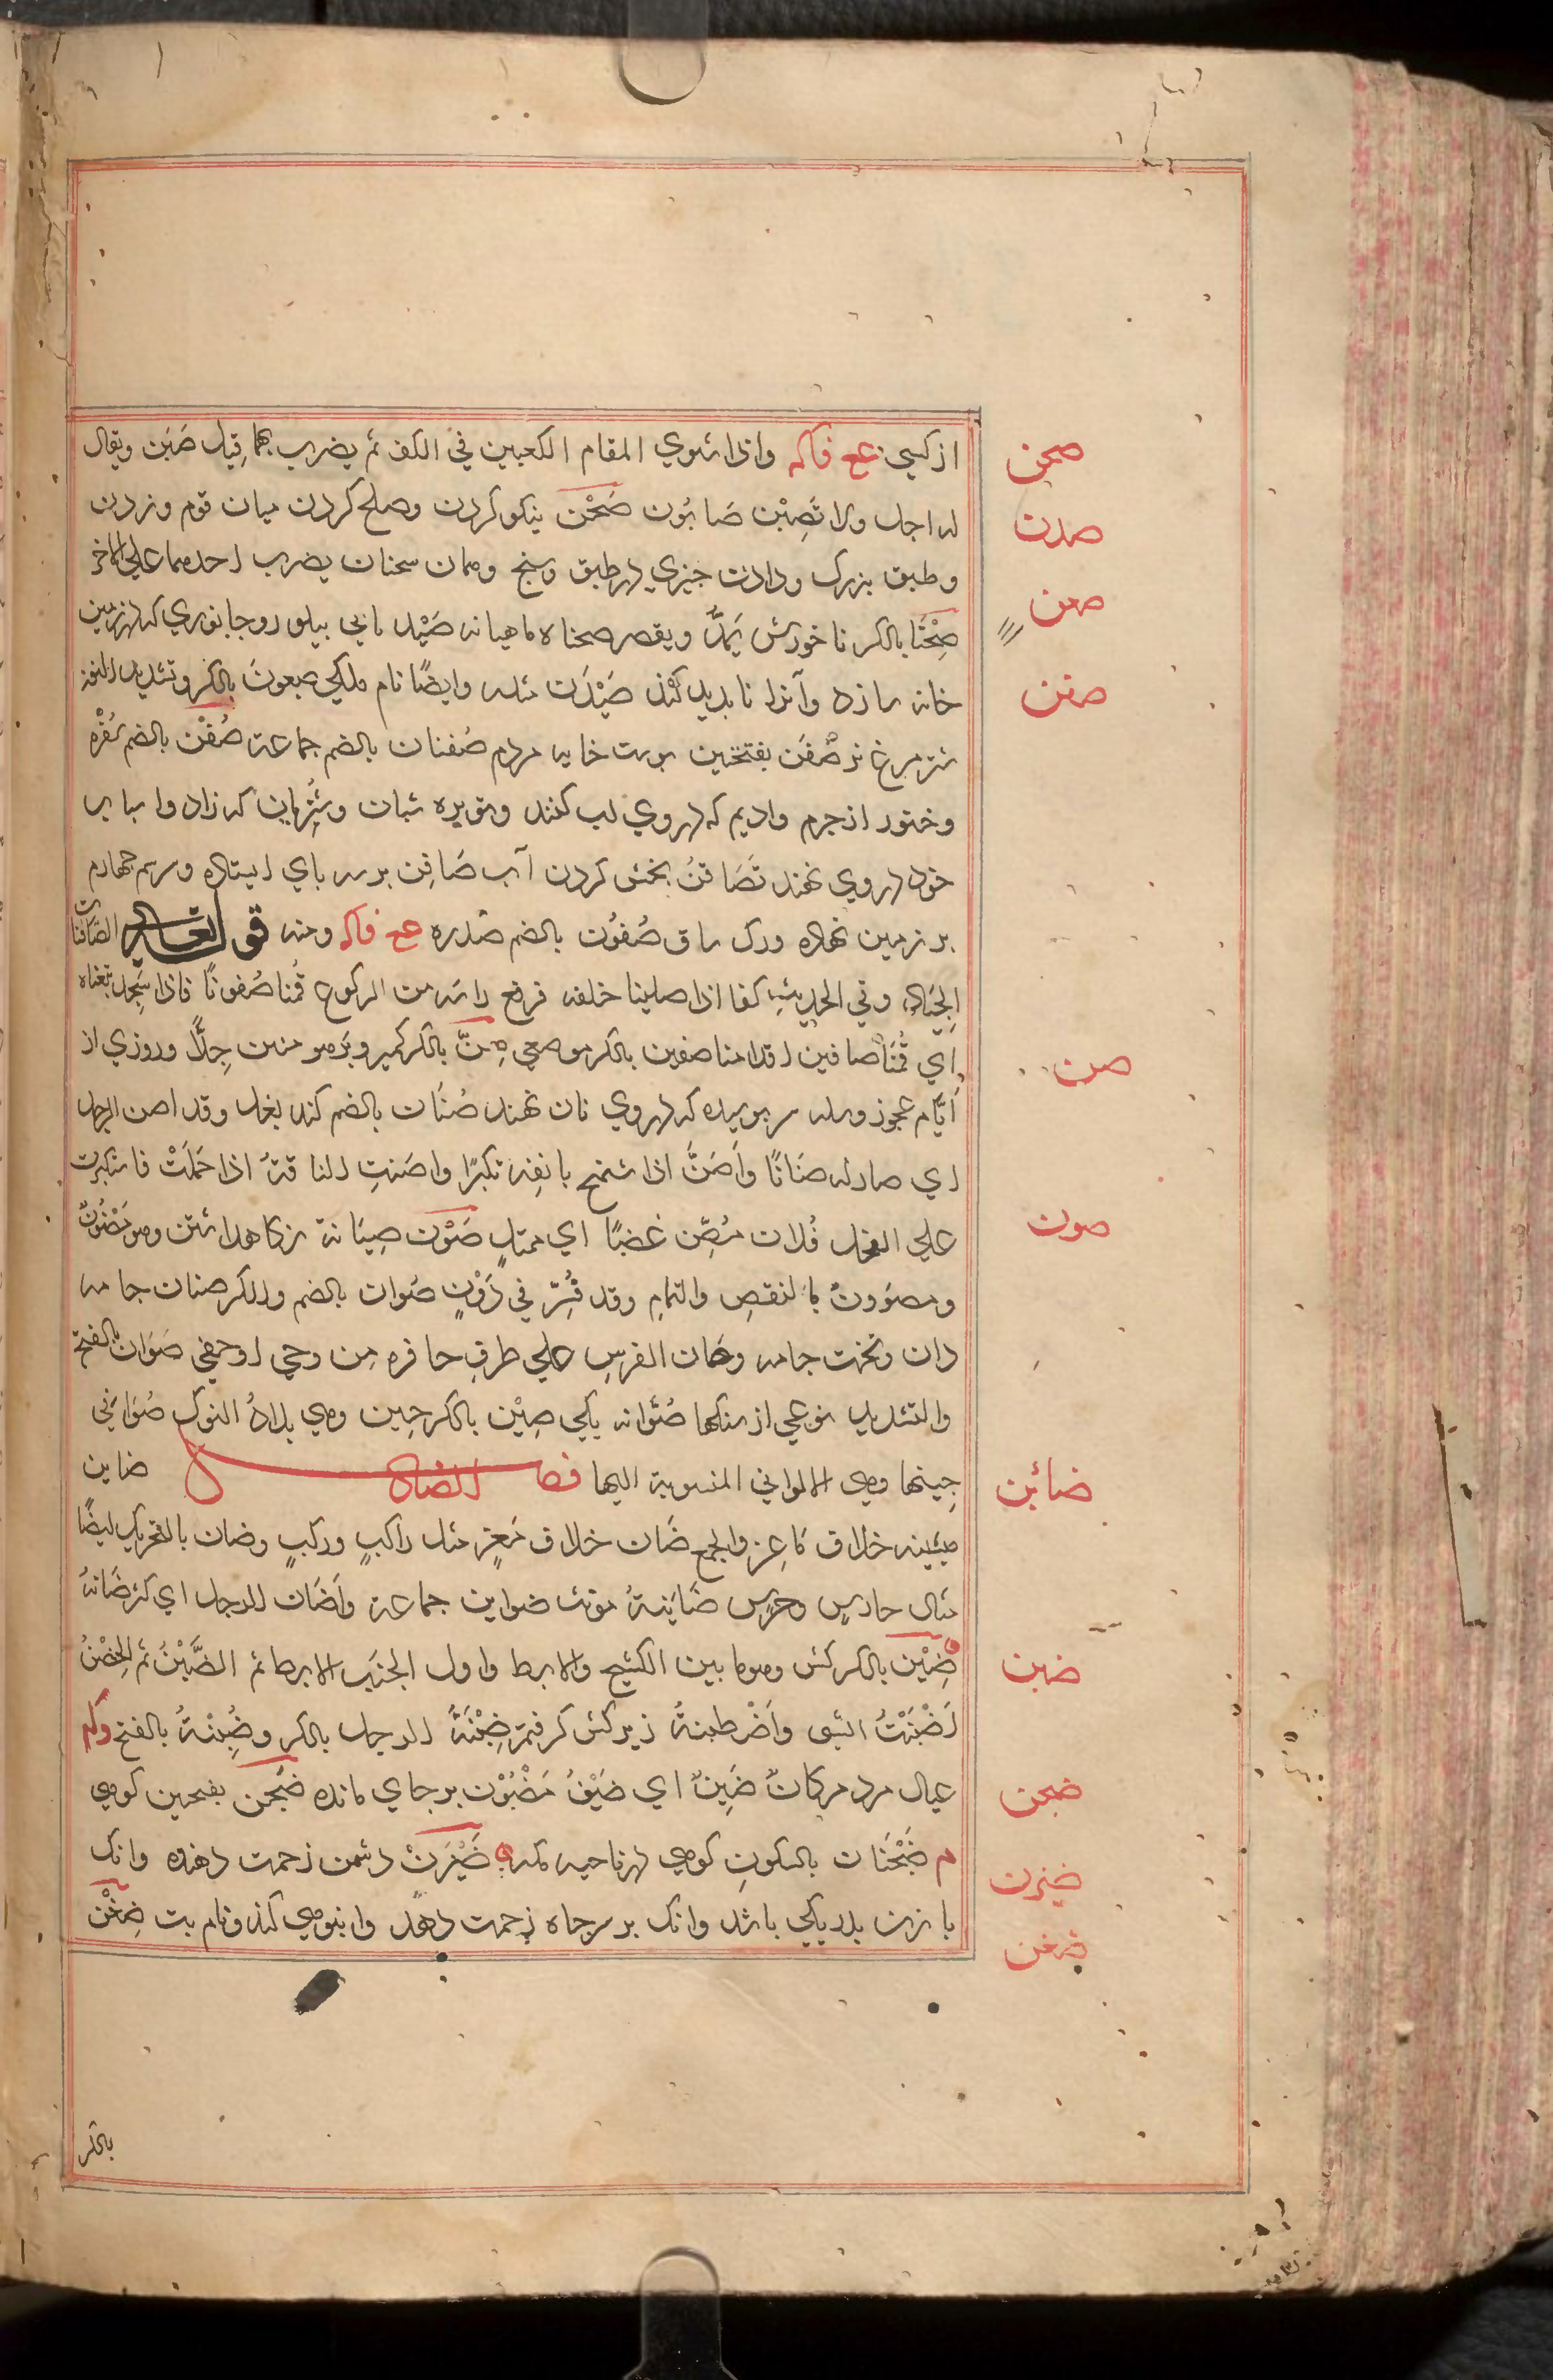 از کسی عع فاکه واذا سوي المقام الکعبین في الکف ثم یضرب بهما قیل صَبَن ویقال
له اجل ولا تَصبِنْ صابُون صَحْن نیکو کردن وصلح کردن میان قوم وزدن
وطبق بزرک ودادن چیزي در طبق وسنج وهمان سحنان یضرب احدهما علی الاخر
صِحْنَا بالکسر نا خورش یَمدُّ ویقصر صحناه ماهیانه صَیْدنانی پیلور وجانوري که در زمین
خانه سازد وآنرا نابدید کند صَیْدَن مثله وایضًا نام ملکی صعون بالکسر وتشدید النون
شتر مرغ نر صَفَن بفتحتین پوست خایه مردم صُفنان بالضم جماعة صُفْن بالضم سُفْره
وخنور از جرم وادیم که در وي لب کنند وتوبره شبان وشتربان که زاد واسباب
خود در وي نهند تَصَافُنُ بخش کردن آب صَافِن بر سه پاي ایستاده وسم چهارم
بر زمین نهاده ورک ساق صُفُوْن بالضم مصدره عع فاکه ومنه قوله تعالی الصَّافنات
الجِیَاد وفي الحدیث کنا اذا صلینا خلفه فرفع راسه من الرکوع قُمنا صُفونًا فاذا سَجد تبعناه
اي قُمْنَا صافین اقدامنا صفین بالکسر موضعی صِنّ بالکسر کمیز وَبَر هو منتن جِدًّا وروزي از
اَیَّام عجوز وسله سرپوشیده که در وي نان نهند صُنَان بالضم کند بغل وقد اصن الرجل
اي صار له صنانًا وَاَصَنَّ اذا شمخ بانفِه تکبرًا واصَنتِ الناقةُ اذا حَمَلَتْ فاستکبرت
علی الفحل فُلان مُصِّن غضبًا اي ممتلٍ صَوْن صِیَانة نکاهداشتن وهو مَصُوْنٌ
ومصوونٌ بالنقصِ والتمامِ وقد فُسِّرَ في دَوْنٍ صُوان بالضم والکسر صنان جامه
دان وتخت جامه وصان الفرسِ علی طرفِ حافره مِن وجی او حفی صَوَّان بالفتح
والتشدید نوعی از سنکها صَوَّانه یکی صِیْن بالکسر چین وهي بلادُ النوک صَوَانی
چینها وهي الاوانی المنسوبة الیها فصل الضاد ضاین
میشینه خلاف مَاعِز والجمع ضَان خلاف مَعز مثل راکبٍ ورکبٍ وضان بالتحریک ایضًا
مثال حارسٍ وحرسٍ ضَایِنَةُ مونث ضواین جماعة وَاَضَان الرجل اي کثر ضَانهُ
ضِبْن بالکسر کش وهو ما بین الکشح والابط واول الجنَب الابط ثم الضِّبْنُ ثم الحِضْنُ
اَضْبَنْتُ الشی واَضْطبنةُ زیر کش کرفتم ضِبْنَةَ الرجل بالکسر وضَبِنْةُ بالفتح
عیال مرد مرکانٌ ضَبِنٌ اي ضَیْقٌ مَضْبُوْن بر جاي مانده ضَجَن بفتحین کوهی
م ضَجْنَان بالسکونِ کوهی در ناحیه مکه ضَیْزَنْ دشمن زحمت دهنده وانک
با زن پدر یکی باشد وانک بر سر چاه زحمت دهد وانبوهي کند ونام بت ضِغْن
بالکسر
صحن
صدن
صعن
صفن
صن
صون
ضائن
ضبن
ضجن
ضیزن
ضغن